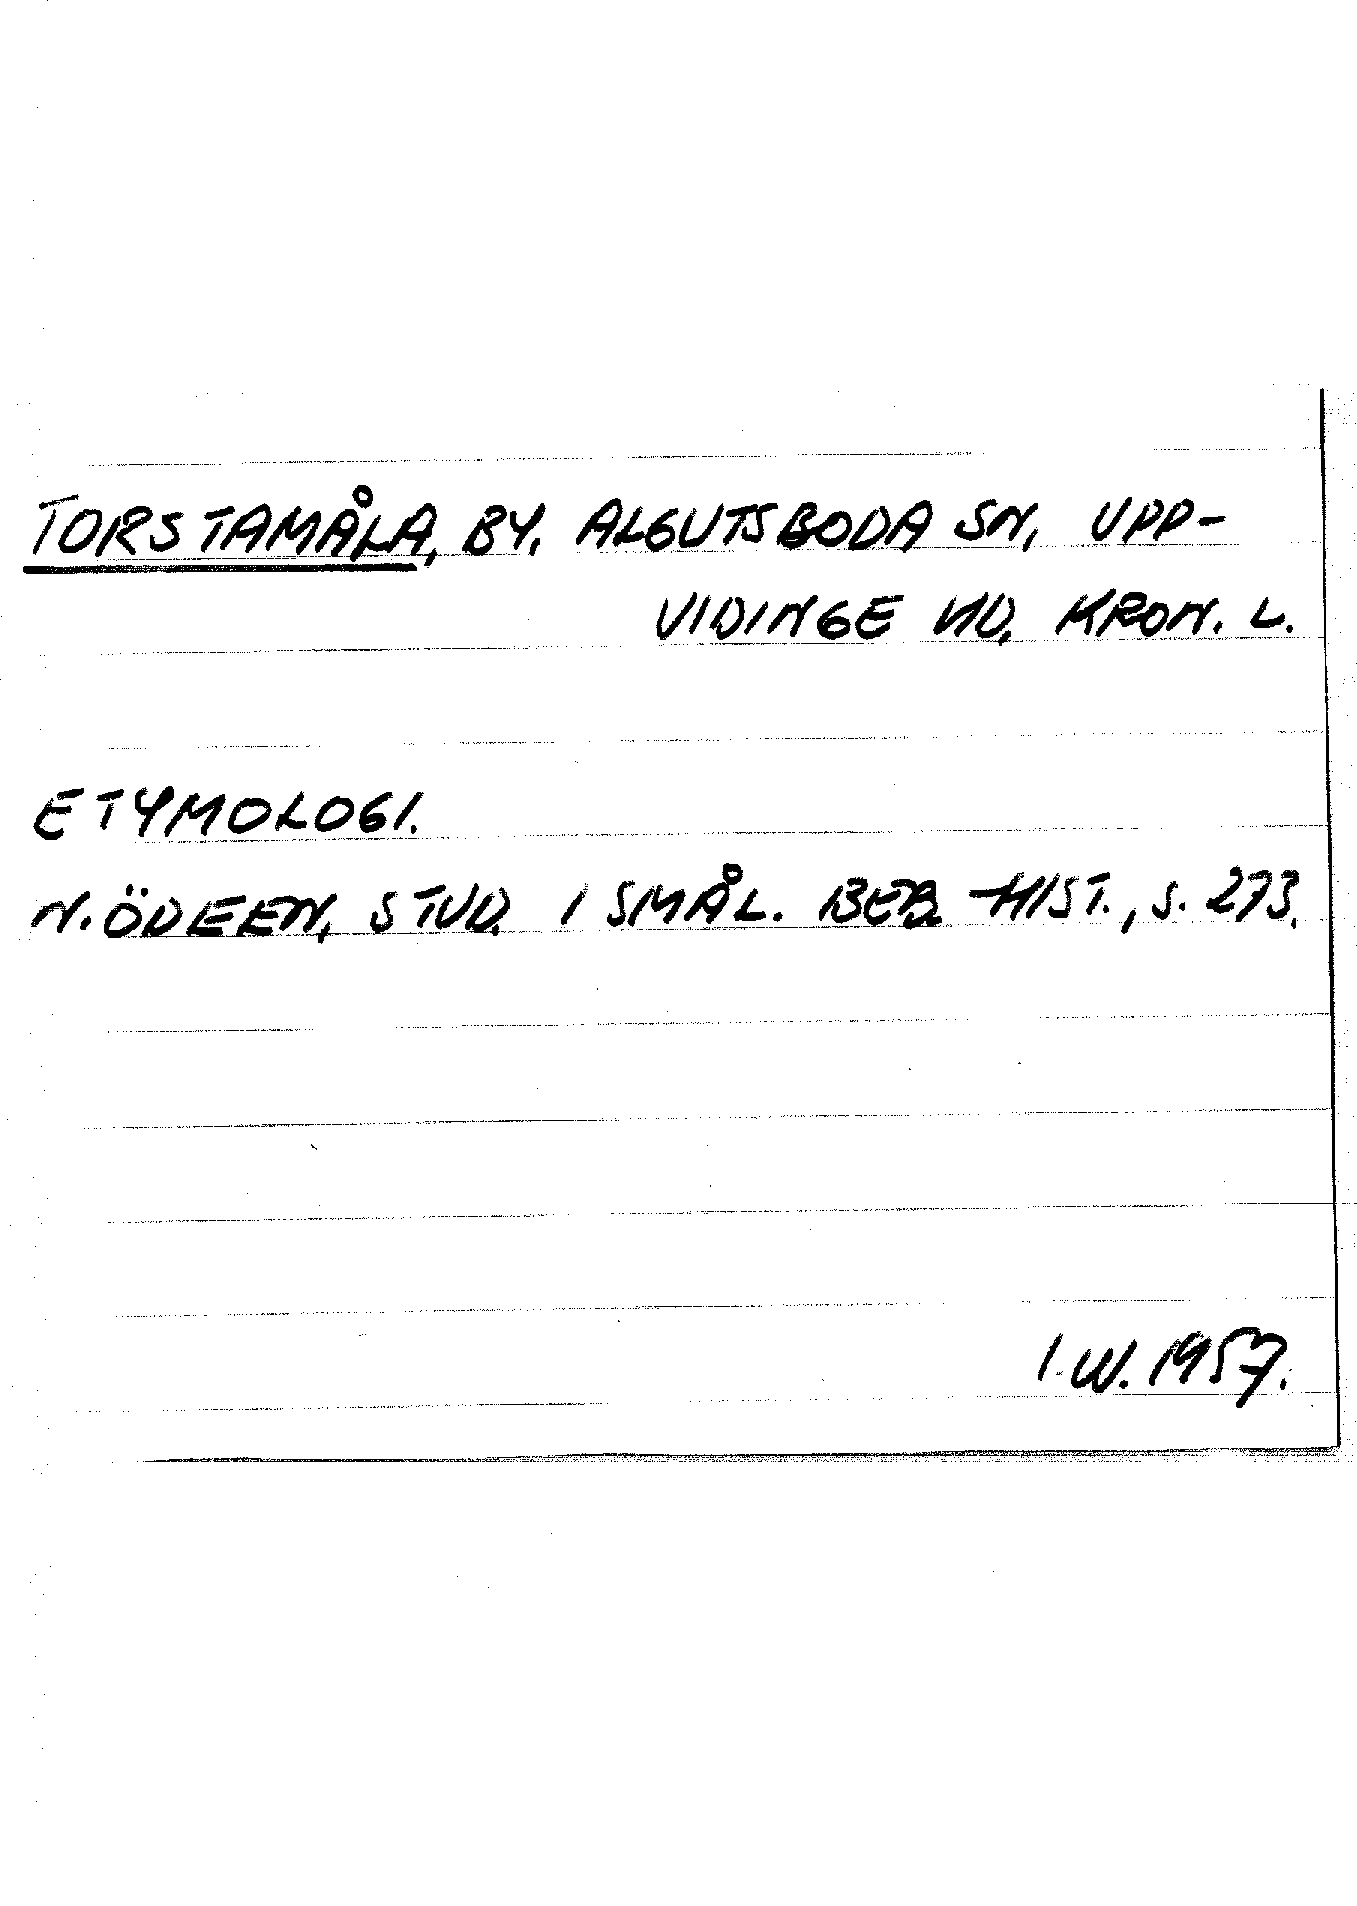 TORSTAMÅLA, BY, ALGUTSBODA SN, UPP-
VIDINGE HD, KRON. L.
ETYMOLOGI.
N. ÖDEEN, STUD. I SMÅL. BEB.-HIST., S. 273.
I.W. 1957.